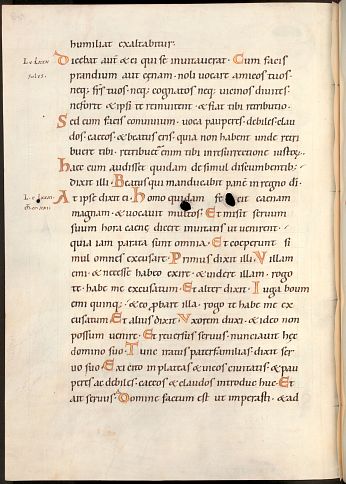 humiliat exaltabitur.
Dicebat aut & ei qui se inuitauerat. Cum facis
prandium aut cęnam. noli uocare amicos tuos.
neq; frs tuos. neq; cognatos neq; uicinos diuites.
ne forte & ipsi te reinuitent. & fiat tibi retributio.
Sed cum facis conuiuium. uoca pauperes. debiles. clau
dos. caecos. & beatus eris. quia non habent unde retri
buere tibi. retribuet enim tibi in resurrectione iustoꝝ.
Haec cum audisset quidam de simul discumbentib;
dixit illi. Beatus qui manducabit panē in regno dī.
At ipse dixit ei. Homo quidam fecit caenam
magnam. & uocauit multos. Et misit seruum
suum hora caenę dicere inuitatis ut uenirent.
quia iam parata sunt omnia. Et coeperunt si
mul omnes excusare. Primus dixit illi. Villam
emi. & necesse habeo exire. & uidere illam. rogo
te. habe me excusatum. Et alter dixit. Iuga boum
emi quinq;. & eo probare illa. rogo te habe me ex
cusatum. Et alius dixit. Vxorem duxi. & ideo non
possum uenire. Et reuersus seruus. nunciauit hęc
domino suo. Tunc iratus paterfamilias. dixit ser
uo suo. Exi cito in plateas & uicos ciuitatis. & pau
peres ac debiles. caecos & claudos introduc huc. Et
ait seruus. Domine factum est ut imperasti. & ad